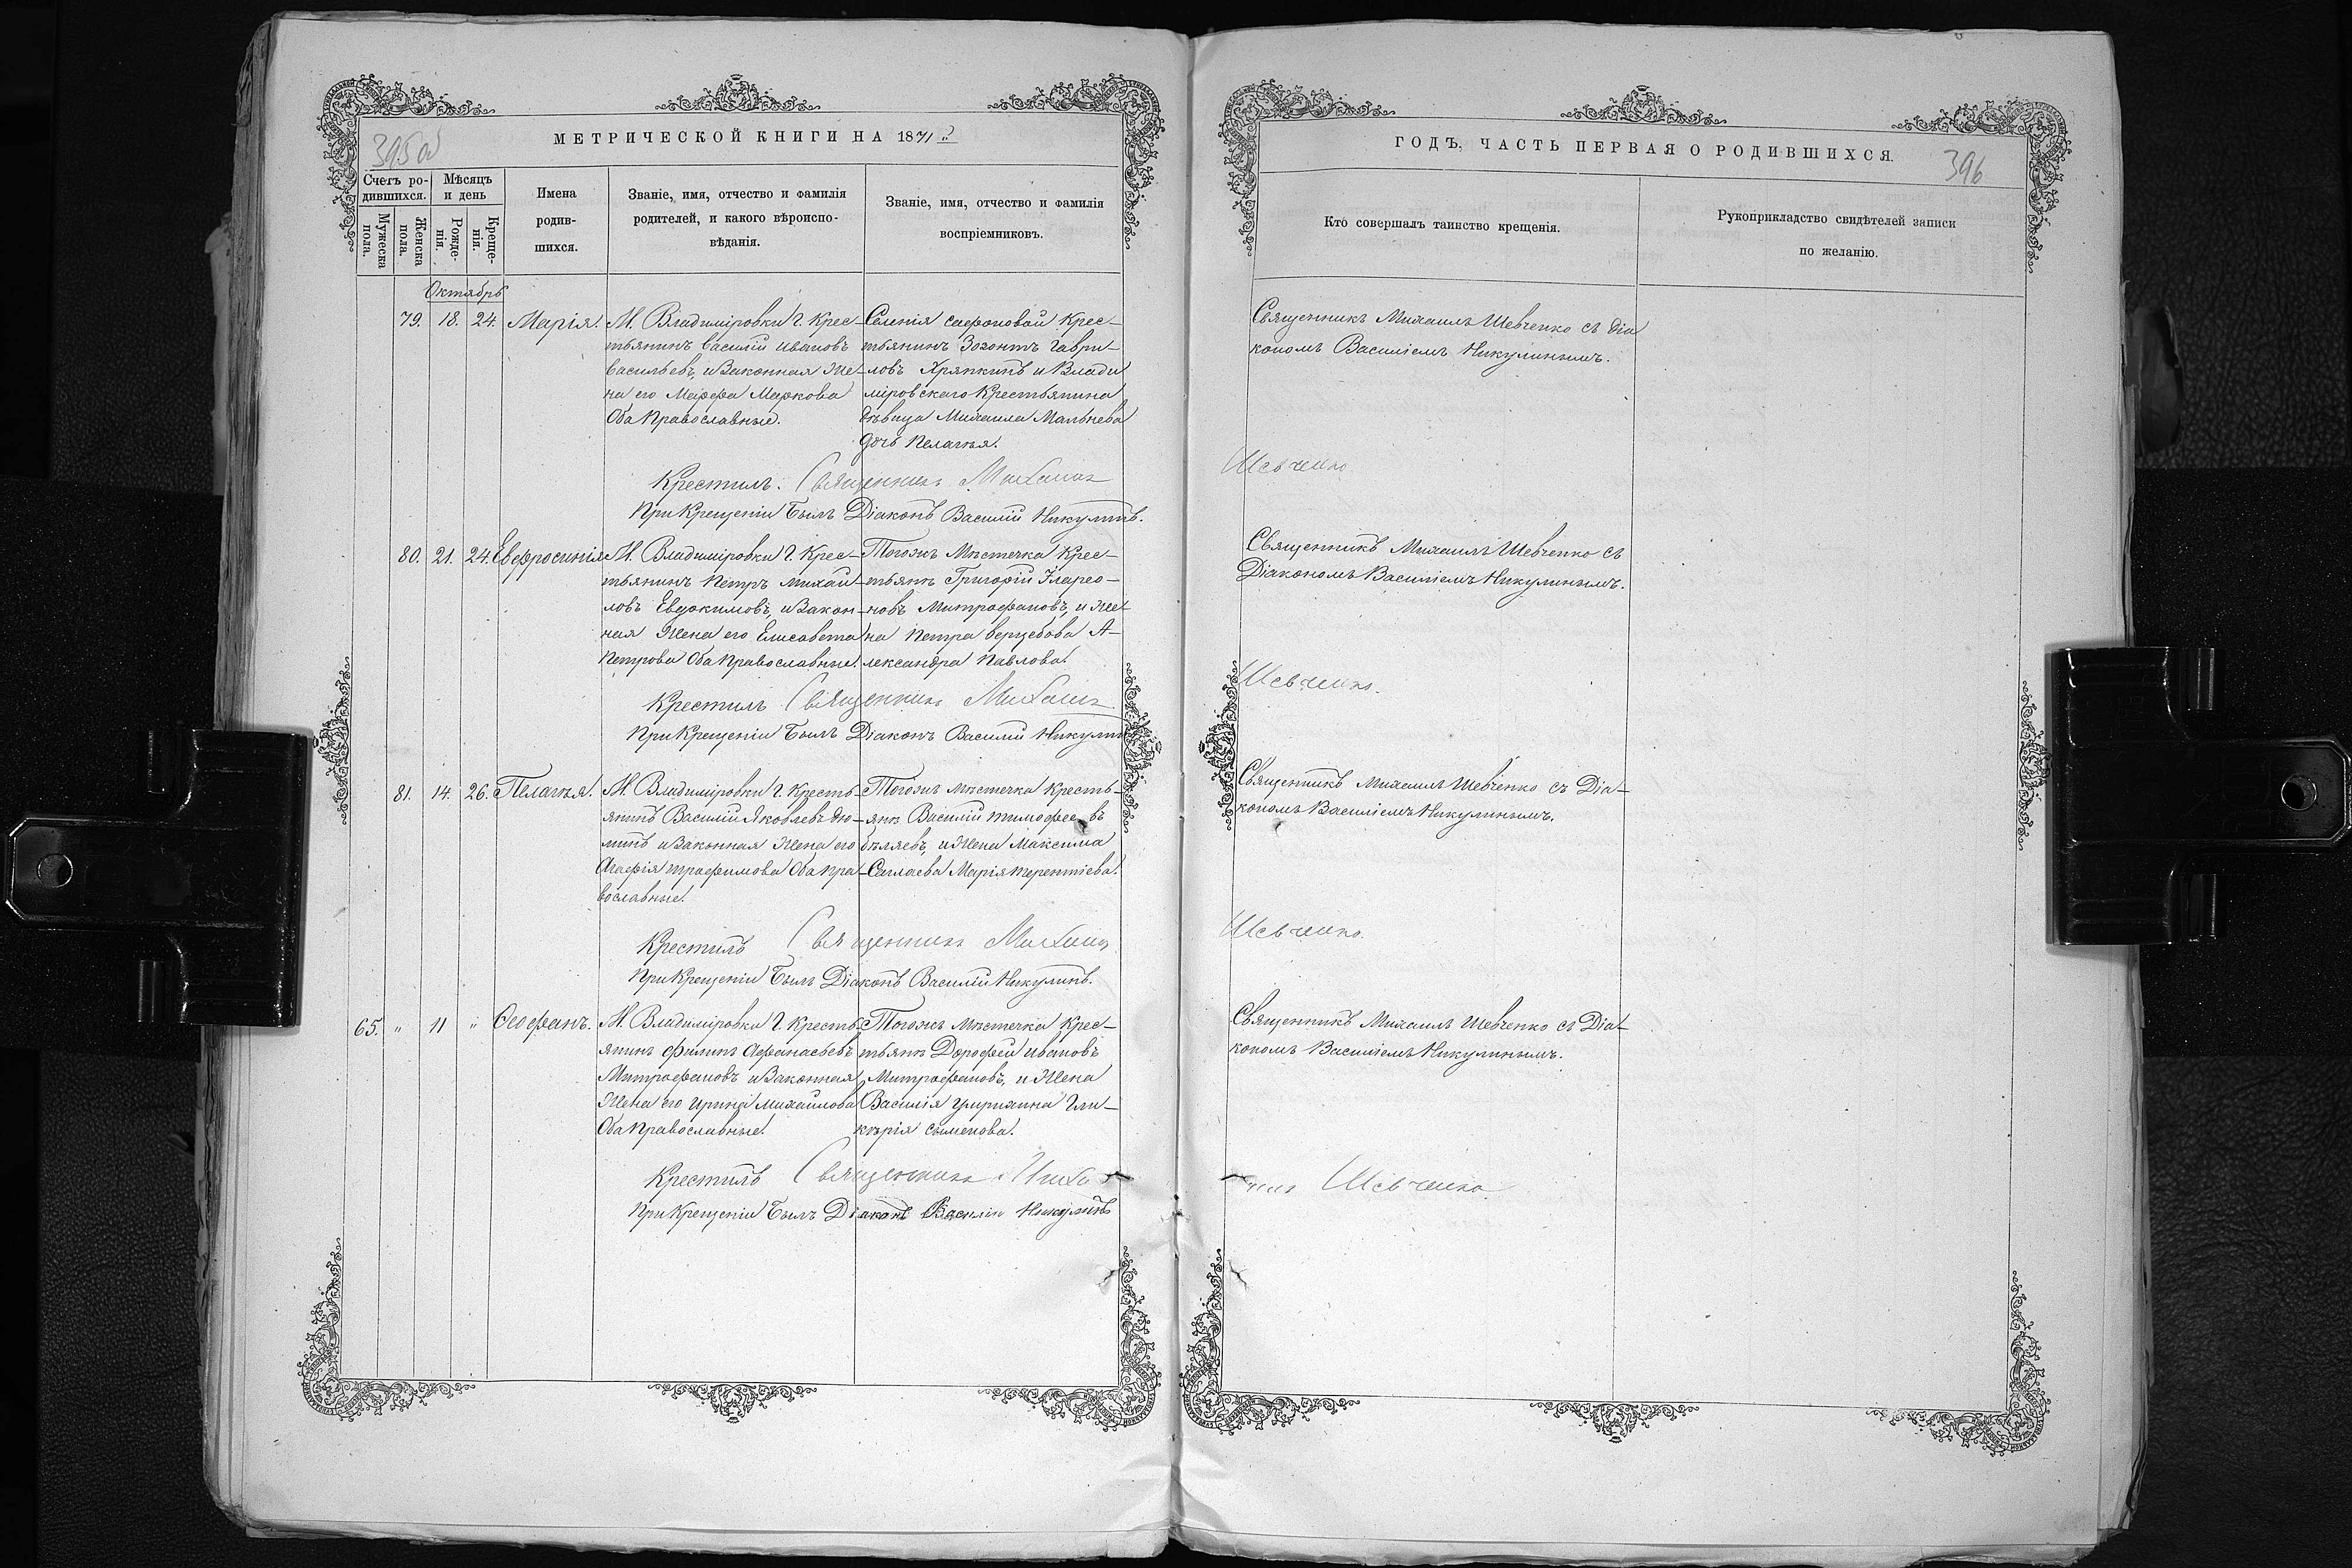 395 об
МЕТРИЧЕСКОЙ КНИГИ НА 1871 й
Счетъ ро-
дившихся.
Мѣсяцъ
и день
Мужеска
пола.
Женска
пола.
Рожде-
нія.
Креще-
нія.
Имена
родив-
шихся.
Званіе, имя, отчество и фамилія
родителей, и какого вѣроиспо-
вѣданія.
Званіе, имя, отчество и фамилія
воспріемниковъ.
Октябрь
79. 18. 24. Марія.
М. Владиміровки Г. Крес-
тьянинъ Василій Ивановъ
Васильевъ, и Законная Же-
на его Марфа Маркова
Оба Православные.
Селенія Сафоновой Крес-
тьянинъ Зозонтъ Гаври-
ловъ Хряпкинъ и Влади
міровскаго Крестьянина
дѣвица Михаила Мальнева
дочь Пелагія.
Крестилъ. Священникъ Михаилъ
При Крещеніи былъ Діаконъ Василій Никулинъ.
80. 21. 24. Евфросинія
М. Владиміровки Г. Крес-
тьянинъ Петръ Михай-
ловъ Евдокимовъ, и Закон-
ная Жена его Елисавета
Петрова Оба Православные.
Тогожъ Мѣстечка Крес-
тьянъ Григорій Иларео-
новъ Митрофановъ, и Же-
на Петра Верцебова А-
лександра Павлова.
Крестилъ Священникъ Михаилъ
При Крещеніи былъ Діаконъ Василій Никулинъ
81. 14. 26. Пелагія.
М. Владиміровки Г. Кресть-
янинъ Василій Яковлевъ Дю-
минъ и Законная Жена его
Агафія Трофимова Оба Пра-
вославные.
Тогожъ Мѣстечка Кресть-
янъ Василій Тимофеевъ
Бѣляевъ, и Жена Максима
Саглаева Марія Терентіева.
Крестилъ Священникъ Михаилъ
При Крещеніи былъ Діаконъ Василій Никулинъ.
65. " 11 " Феофанъ.
М. Владиміровки Г. Кресть-
янинъ Филипъ Афанасьевъ
Митрофановъ и Законная
Жена его Ирина Михаилова
Оба Православные.
Тогожъ Мѣстечка Крес-
тьянъ Дорофей Ивановъ
Митрофановъ, и Жена
Василія Гли-
кѣрія Сѣменова.
Крестилъ Священникъ Миха
При Крещеніи былъ Діаконъ Василіи Никулинъ
ГОДЪ. ЧАСТЬ ПЕРВАЯ О РОДИВШИХСЯ.
396
Кто совершалъ таинство крещенія.
Рукоприкладство свидѣтелей записи
по желанію.
Священникъ Михаилъ Шевченко съ діа
кономъ Василіемъ Никулинымъ.
Шевченко
Священникъ Михаилъ Шевченко съ
Діакономъ Василіемъ Никулинымъ.
Шевченко.
Священникъ Михаилъ Шевченко съ Діа-
кономъ Василіемъ Никулинымъ.
Шевченко.
Священникъ Михаилъ Шевченко съ Діа-
кономъ Василіемъ Никулинымъ.
илъ Шевченко.